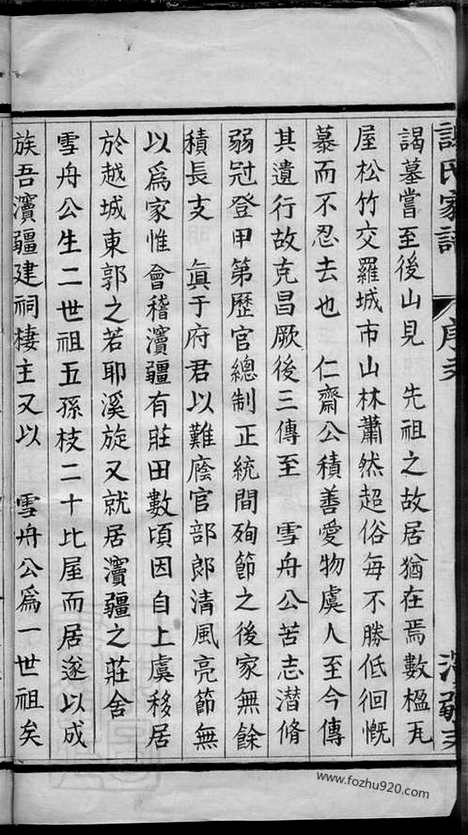 謁墓嘗至後山見　先祖之故居猶在焉數楹瓦
屋松竹交羅城市山林蕭然超俗每不勝低徊慨
慕而不忍去也　仁齋公積善愛物虞人至今傳
其遺行故克昌厥後三傳至　雪舟公苦志潛脩
弱冠登甲第歷官總制正統間殉節之後家無餘
積長支　真于府君以難廕官部郎清風亮節無
以爲家惟會稽瀆疆有莊田數頃因自上虞移居
於越城東郭之若耶溪旋又就居瀆疆之莊舍
雪舟公生二世祖五孫枝二十比屋而居遂以成
族吾瀆疆建祠棲主又以　雪舟公爲一世祖矣
www.fozhu920.com